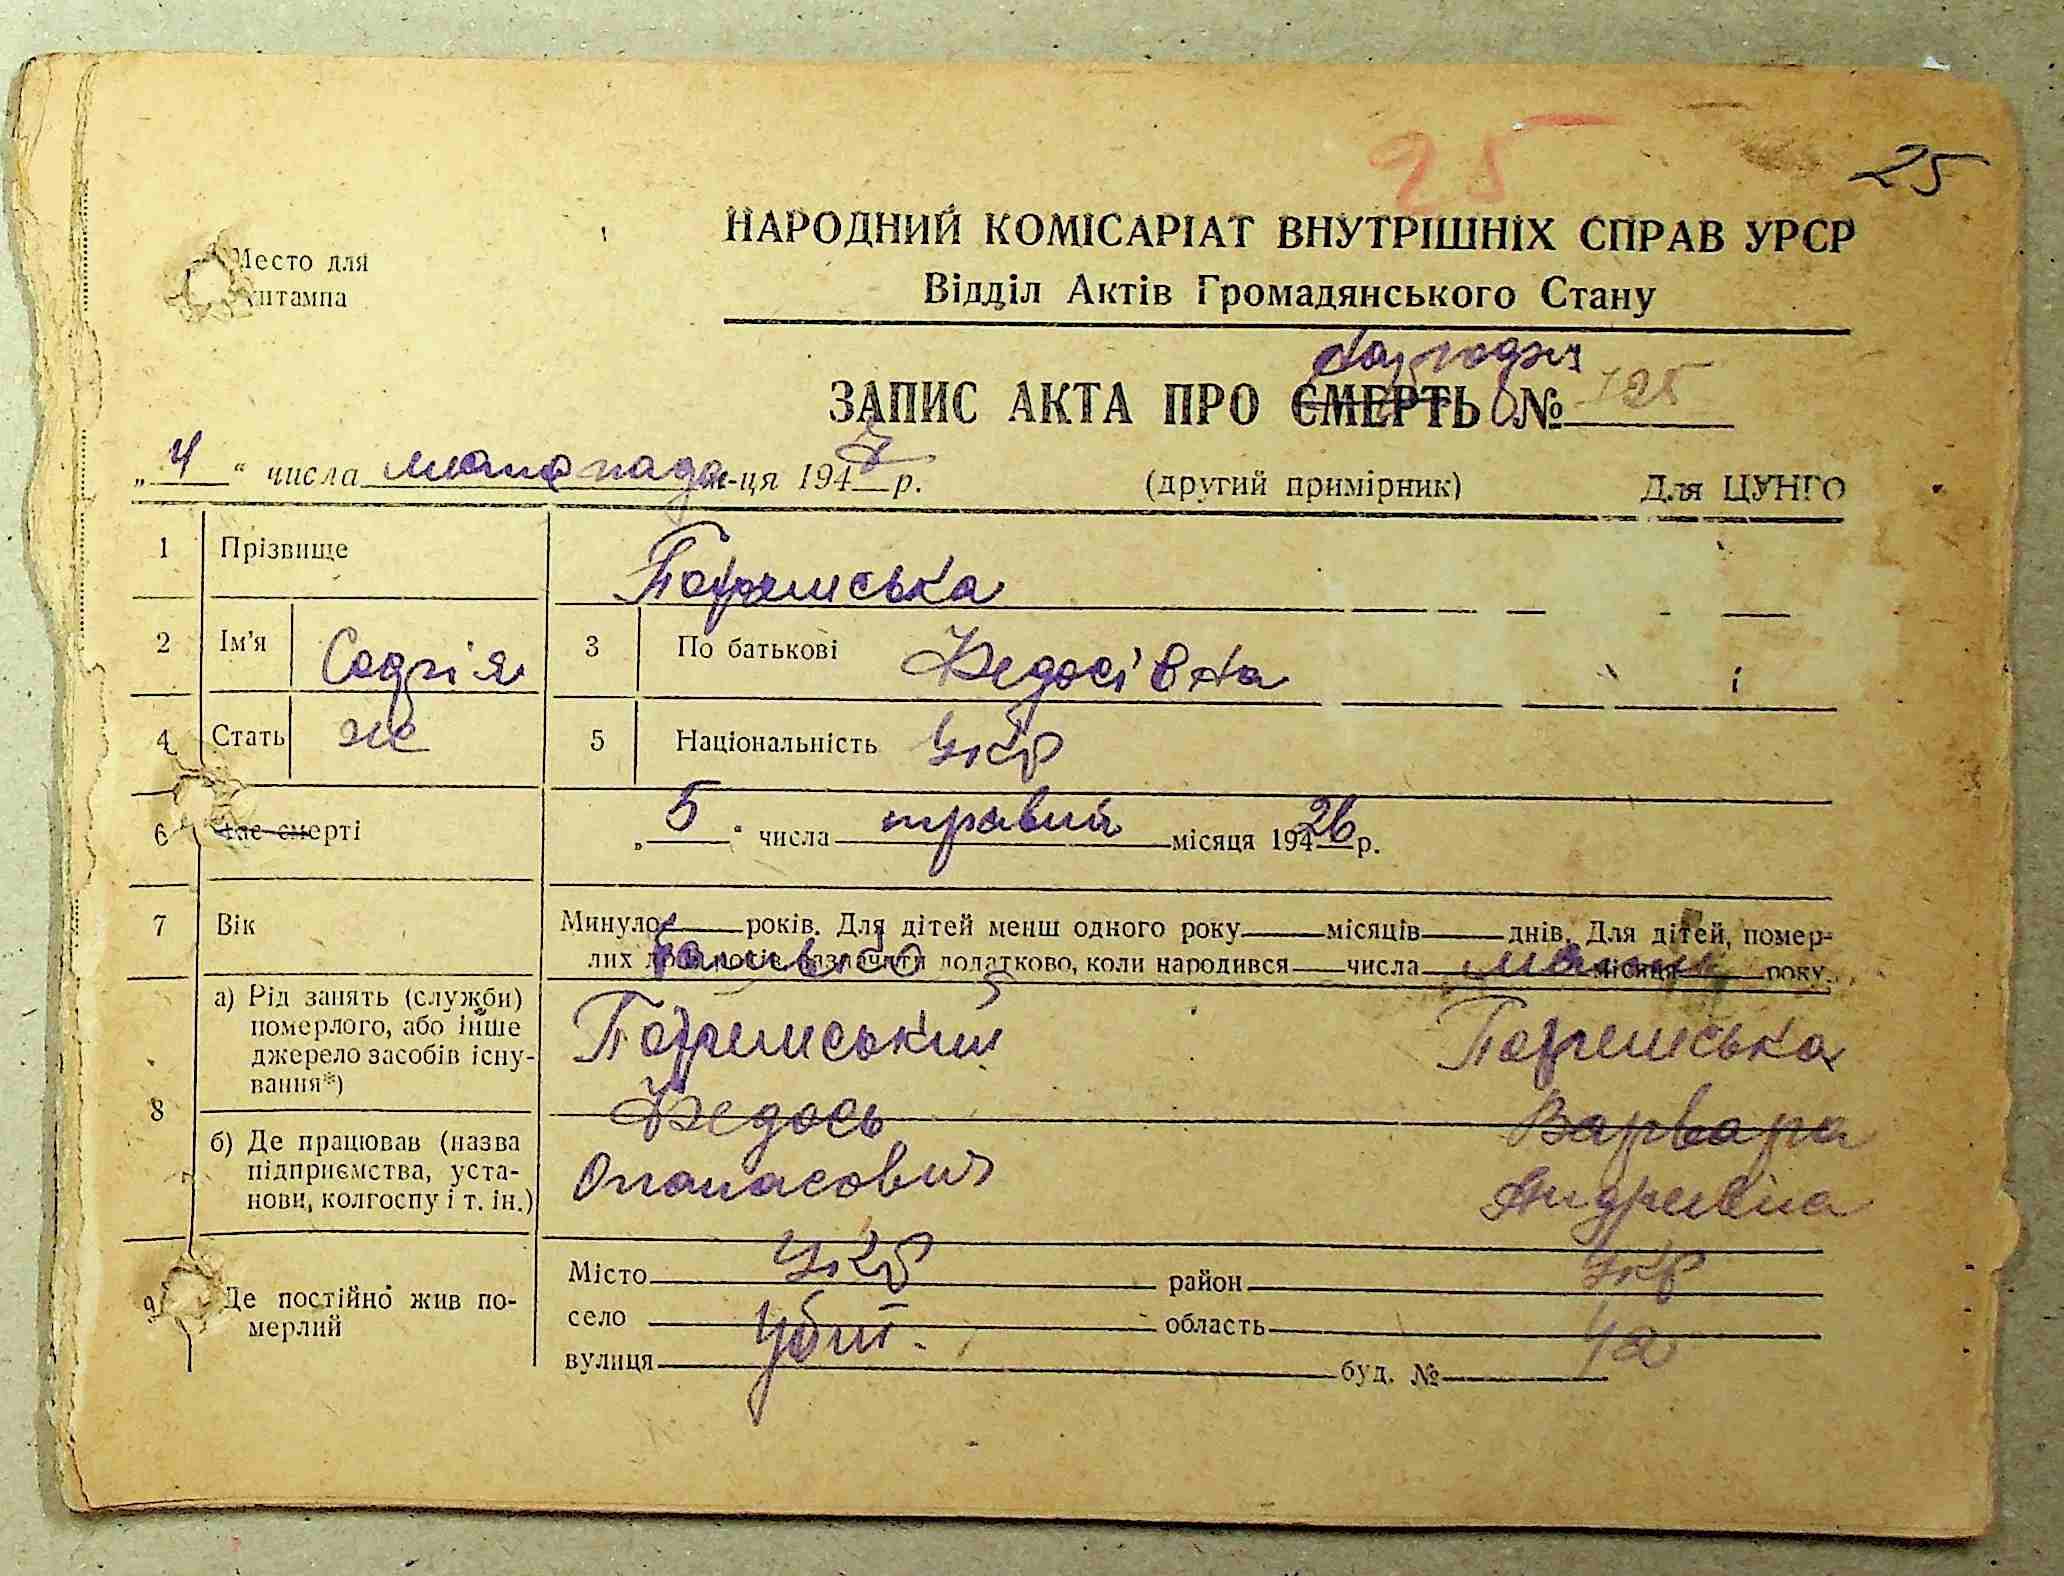 25
25
НАРОДНИЙ КОМІСАРІАТ ВНУТРІШНІХ СПРАВ УРСР
Место для
штампа
Відділ Актів Громадянського Стану
ЗАПИС АКТА ПРО СМЕРТЬ № 125
„4“ числа листопада м-ця 1947 р. (другий примірник) Для ЦУНГО
1 Прізвище
2 Ім'я Софія 3 По батькові Федосівна
4 Стать ж 5 Національність Укр
6 Час смерті „5“ числа травня місяця 194 26 р.
7 Вік Минуло років. Для дітей менш одного року місяців днів. Для дітей, помер-
лих додатково, коли народився числа місяця року.
8 а) Рід занять (служби)
померлого, або інше
джерело засобів існу-
вання*)
Федось Варвара
б) Де працював (назва
підприємства, уста-
нови, колгоспу і т. ін.)
Опанасович Андріївна
9 Де постійно жив по-
мерлий
Місто Укр район Укр
село область
вулиця буд. №